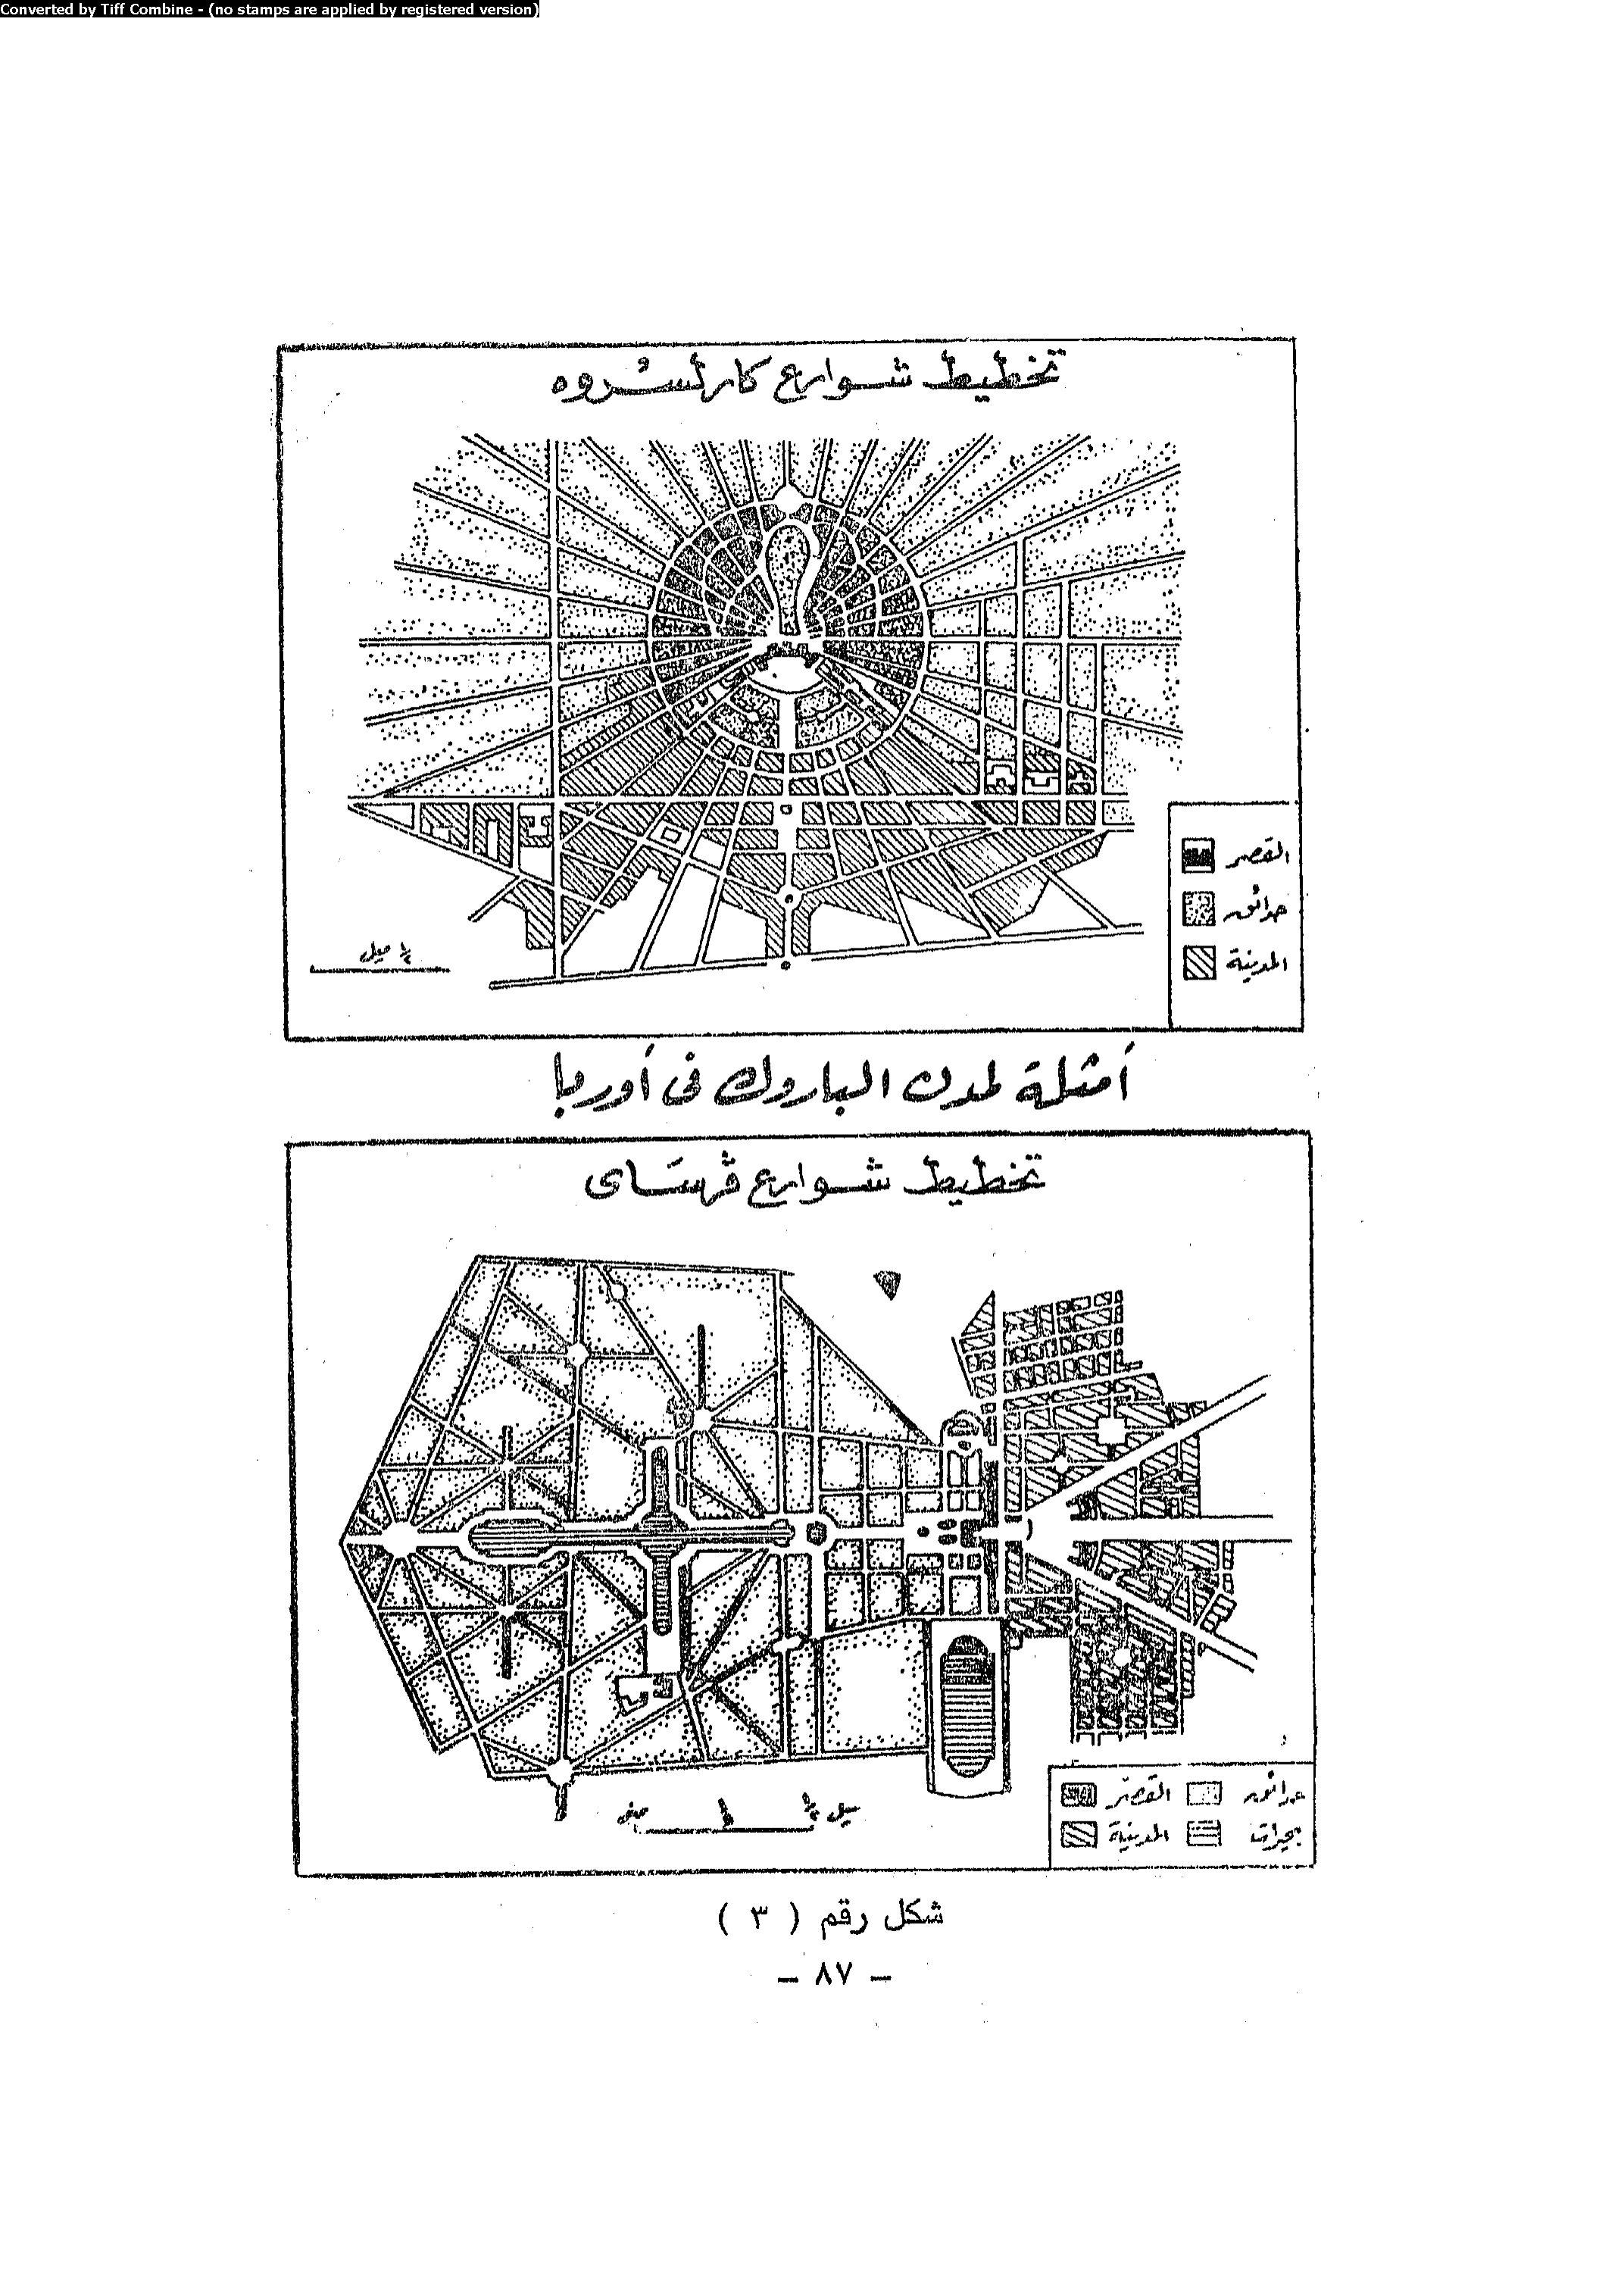 Converted by Tiff Combine - (no stamps are applied by registered version)
تخطيط شوارع كارلسروه
القصر
حدائق
المدينة
ميل
أمثلة لمدن الباروك فى أوربا
تخطيط شوارع ڤرساى
القصر
حدائق
المدينة
بحيرات
صفر
ميل
شكل رقم ( ٣ )
– ٨٧ –